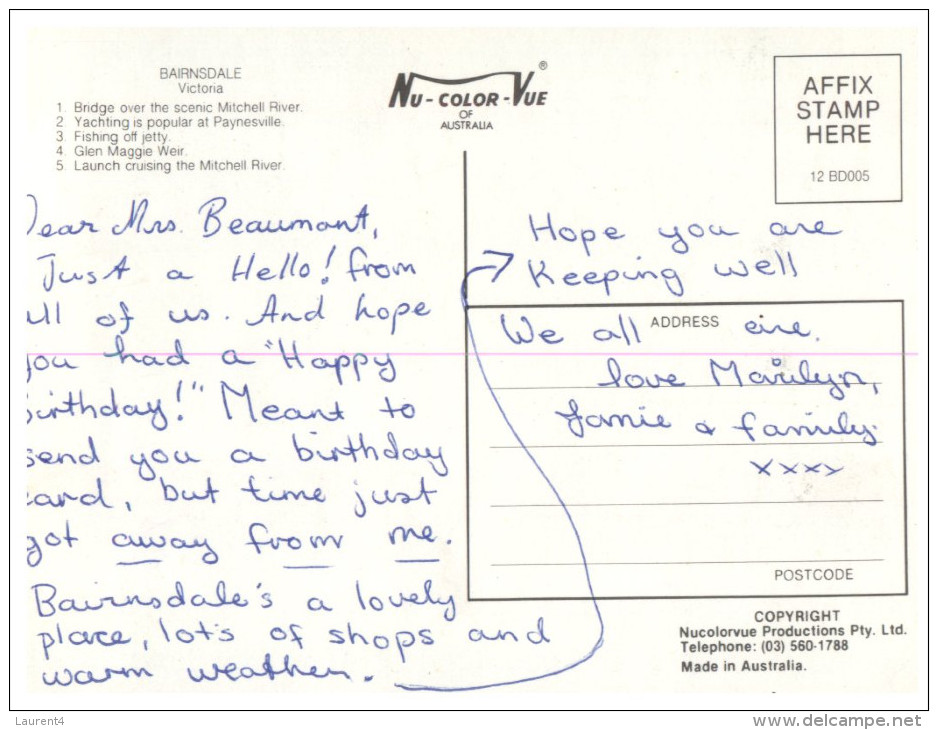 BAIRNSDALE
Victoria
1. Bridge over the scenic Mitchell River.
2 Yachting is popular at Paynesville.
3. Fishing off jetty.
4. Glen Maggie Weir.
5. Launch cruising the Mitchell River.
NU-COLOR-VUE ®
OF
AUSTRALIA
AFFIX
STAMP
HERE
12 BD005
Dear Mrs. Beaumont,
Just a Hello! from
all of us. And hope
you had a "Happy
birthday!" Meant to
send you a birthday
card, but time just
got away from me.
Bairnsdale's a lovely
place, lot's of shops and
warm weather.
Hope you are
Keeping well
We all eire.
ADDRESS
love Marilyn,
Jamie & family.
xxxx
POSTCODE
COPYRIGHT
Nucolorvue Productions Pty. Ltd.
Telephone: (03) 560-1788
Made in Australia.
Laurent4
www.delcampe.net